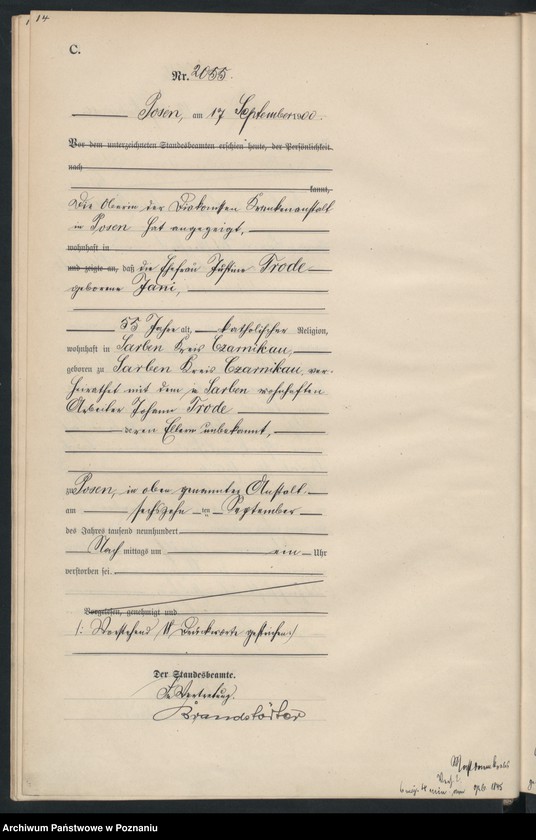 14
C.
Nr. 2055.
Posen, am 17 September 1900.
Vor dem unterzeichneten Standesbeamten erschien heute, der Persönlichkeit
nach
kannt,
Die Oberin der Diakonissen Krankenanstalt
in Posen hat angezeigt,
wohnhaft in
und zeigte an, daß die Ehefrau Justine Trode
geborene Jani,
55 Jahre alt, katholischer Religion,
wohnhaft in Sarben Kreis Czarnikau,
geboren zu Sarben Kreis Czarnikau, ver-
heirathet mit dem in Sarben wohnhaften
Arbeiter Johann Trode
deren Eltern unbekannt,
zu Posen, in oben genannter Anstalt
am sechszehn ten September
des Jahres tausend neunhundert
Nach mittags um ein Uhr
verstorben sei.
Vorgelesen, genehmigt und
/: Vorstehend Druckworte gestrichen :/
Der Standesbeamte.
In Vertretung.
Brandstödter
Archiwum Państwowe w Poznaniu